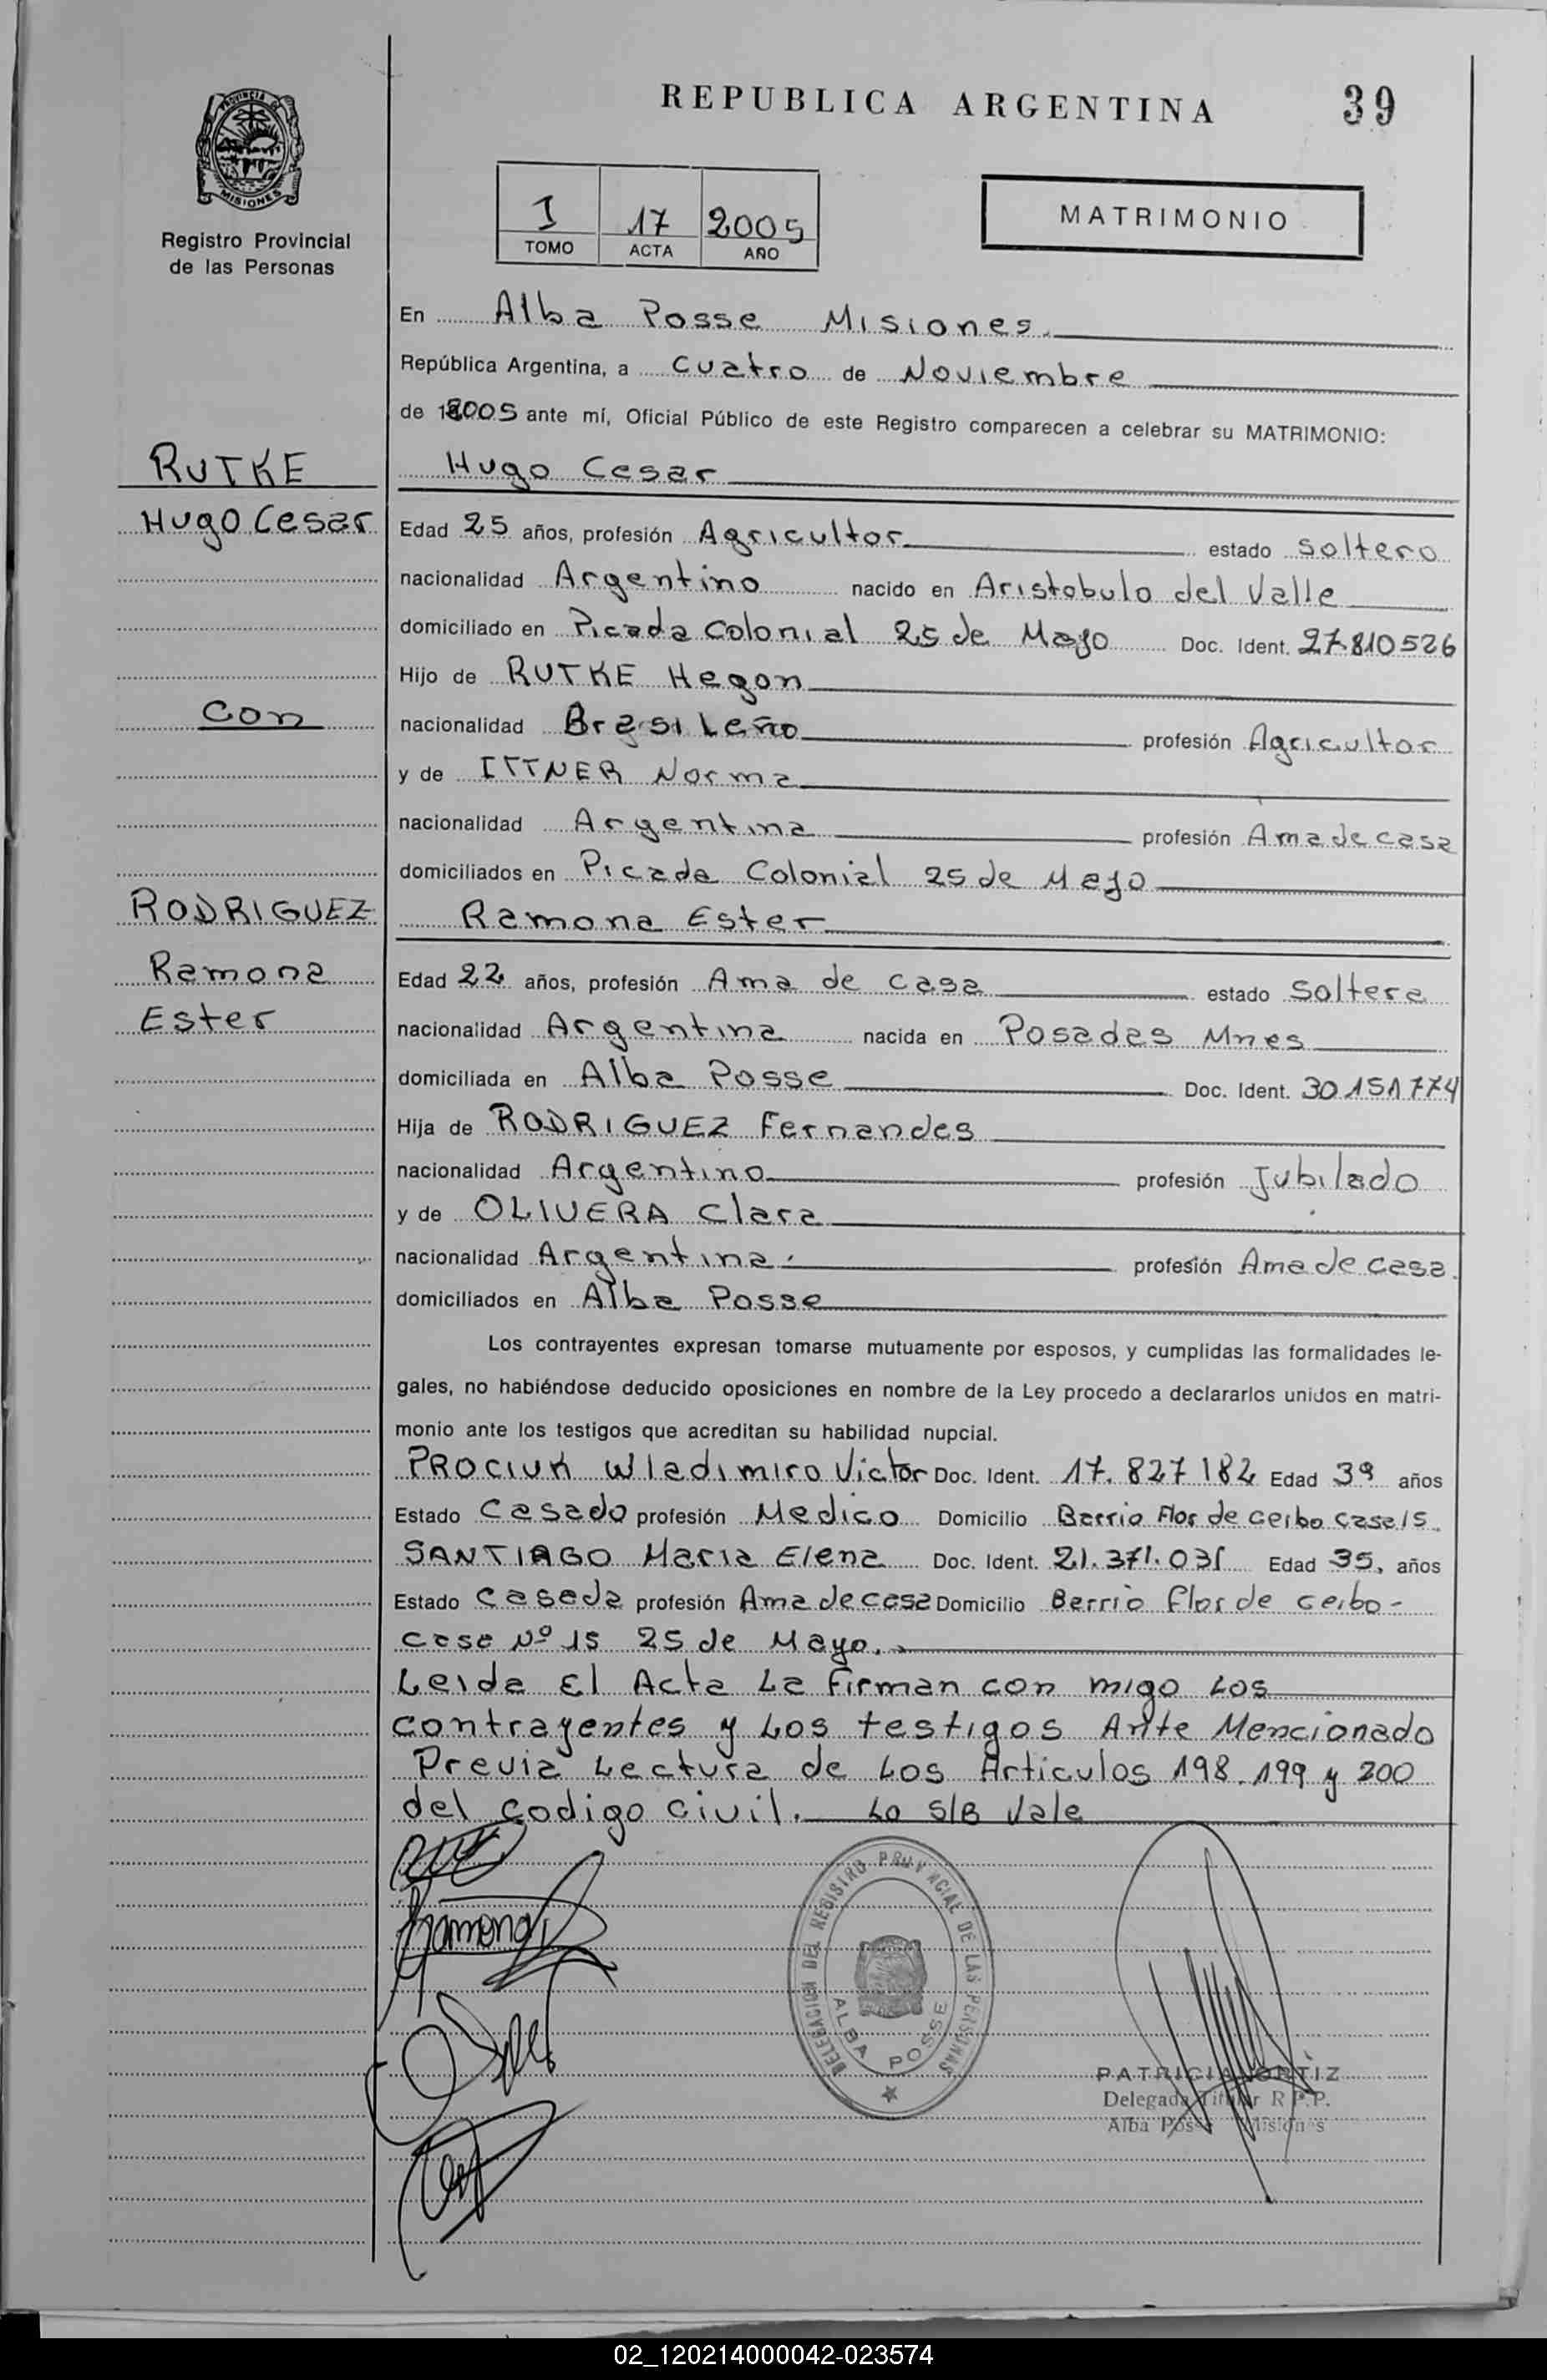 REPUBLICA ARGENTINA 39
PROVINCIA DE MISIONES
Registro Provincial
de las Personas
I 17 2005
TOMO ACTA AÑO
MATRIMONIO
En Alba Posse Misiones.
República Argentina, a cuatro de Noviembre
de 2005 ante mí, Oficial Público de este Registro comparecen a celebrar su MATRIMONIO:
RUTKE Hugo Cesar
Hugo Cesar Edad 25 años, profesión Agricultor estado Soltero
nacionalidad Argentino nacido en Aristobulo del Valle
domiciliado en Picada Colonial 25 de Mayo Doc. Ident. 27.810526
Hijo de RUTKE Hegon
con nacionalidad Brasileño profesión Agricultor
y de ITTNER Norma
nacionalidad Argentina profesión Ama de casa
domiciliados en Picada Colonial 25 de Mayo
RODRIGUEZ Ramona Ester
Ramona Edad 22 años, profesión Ama de casa estado Soltera
Ester nacionalidad Argentina nacida en Posadas Mnes
domiciliada en Alba Posse Doc. Ident. 30151774
Hija de RODRIGUEZ Fernandes
nacionalidad Argentino profesión Jubilado
y de OLIVERA Clara
nacionalidad Argentina profesión Ama de casa
domiciliados en Alba Posse
Los contrayentes expresan tomarse mutuamente por esposos, y cumplidas las formalidades le-
gales, no habiéndose deducido oposiciones en nombre de la Ley procedo a declararlos unidos en matri-
monio ante los testigos que acreditan su habilidad nupcial.
PROCIUK Wladimiro Victor Doc. Ident. 17.827182 Edad 39 años
Estado Casado profesión Medico Domicilio Barrio Flor de ceibo casa 15.
SANTIAGO Maria Elena Doc. Ident. 21.371.031 Edad 35. años
Estado Casada profesión Ama de casa Domicilio Barrio flor de ceibo-
Casa Nº 15 25 de Mayo.
Leida El Acta La Firman con migo Los
contrayentes y Los testigos Ante Mencionado
Previa Lectura de Los Articulos 198.199 y 200
del codigo civil. Lo S/B Vale
Ramona
DELEGACION DEL REGISTRO PROVINCIAL DE LAS PERSONAS
ALBA POSSE
PATRICIA ORTIZ
Delegada Titular R.P.P.
Alba Posse Misiones
02_120214000042-023574